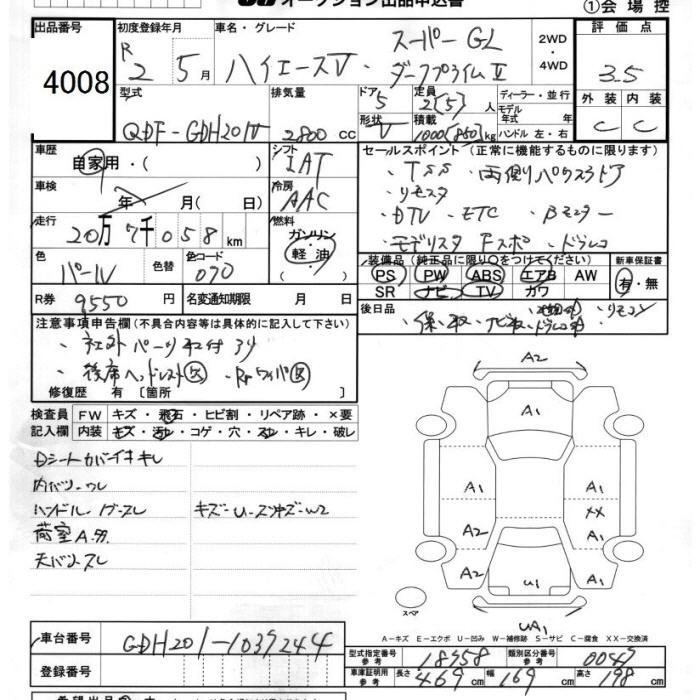 オークション出品申込書
①会場控
出品番号 初度登録年月 車名・グレード 評価点
4008 R 2 5月 ハイエースV スーパーGL ダークプライムⅡ 2WD・4WD 3.5
型式 排気量 ドア 定員 ディーラー・並行 外装 内装
QDF-GDH201V 2800cc 5 2(5)人 モデル年式 年 C C
形状 V 積載 1000(850)kg ハンドル 左・右
車歴 自家用・( ) シフト IAT セールスポイント (正常に機能するものに限ります)
車検 年 月( 日) 冷房 AAC ・TSS ・両側パワスラドア
・リモスタ
走行 20万7千058km 燃料 ガソリン・軽油 ・DTV ・ETC ・Bモニター
・モデリスタFスポ ・ドラレコ
色 パール 色替 色コード 070 装備品(純正品に限り○をつけてください) 新車保証書
PS PW ABS エアB AW 有・無
SR ナビ TV カワ
R券 9550円 名変通知期限 月 日 後日品 ・保、取、ナビ取、ドラレコ取 ・リモコン
注意事項申告欄(不具合内容等は具体的に記入して下さい)
・社外パーツ取付あり
・後席ヘッドレスト欠 ・Rrワイパ欠
修復歴 有 〔箇所 〕
検査員記入欄 FW キズ・飛石・ヒビ割・リペア跡・×要
内装 キズ・汚レ・コゲ・穴・スレ・キレ・破レ
Dシートカバーイキキレ
内バリウレ
ハンドル・ノブスレ キズ・U・ス沖ズ・W2
荷室A.ヌ
天バリスレ
A2
A1
A1 A1
XX
A2 A1
A2 U1 A1
スペア UA1
A-キズ E-エクボ U-凹み W-補修跡 S-サビ C-腐食 XX-交換済
車台番号 GDH201-1039244 型式指定番号 参考 18958 類別区分番号 参考 0047
登録番号 車庫証明用 参考 長さ 469cm 幅 169cm 高さ 198cm